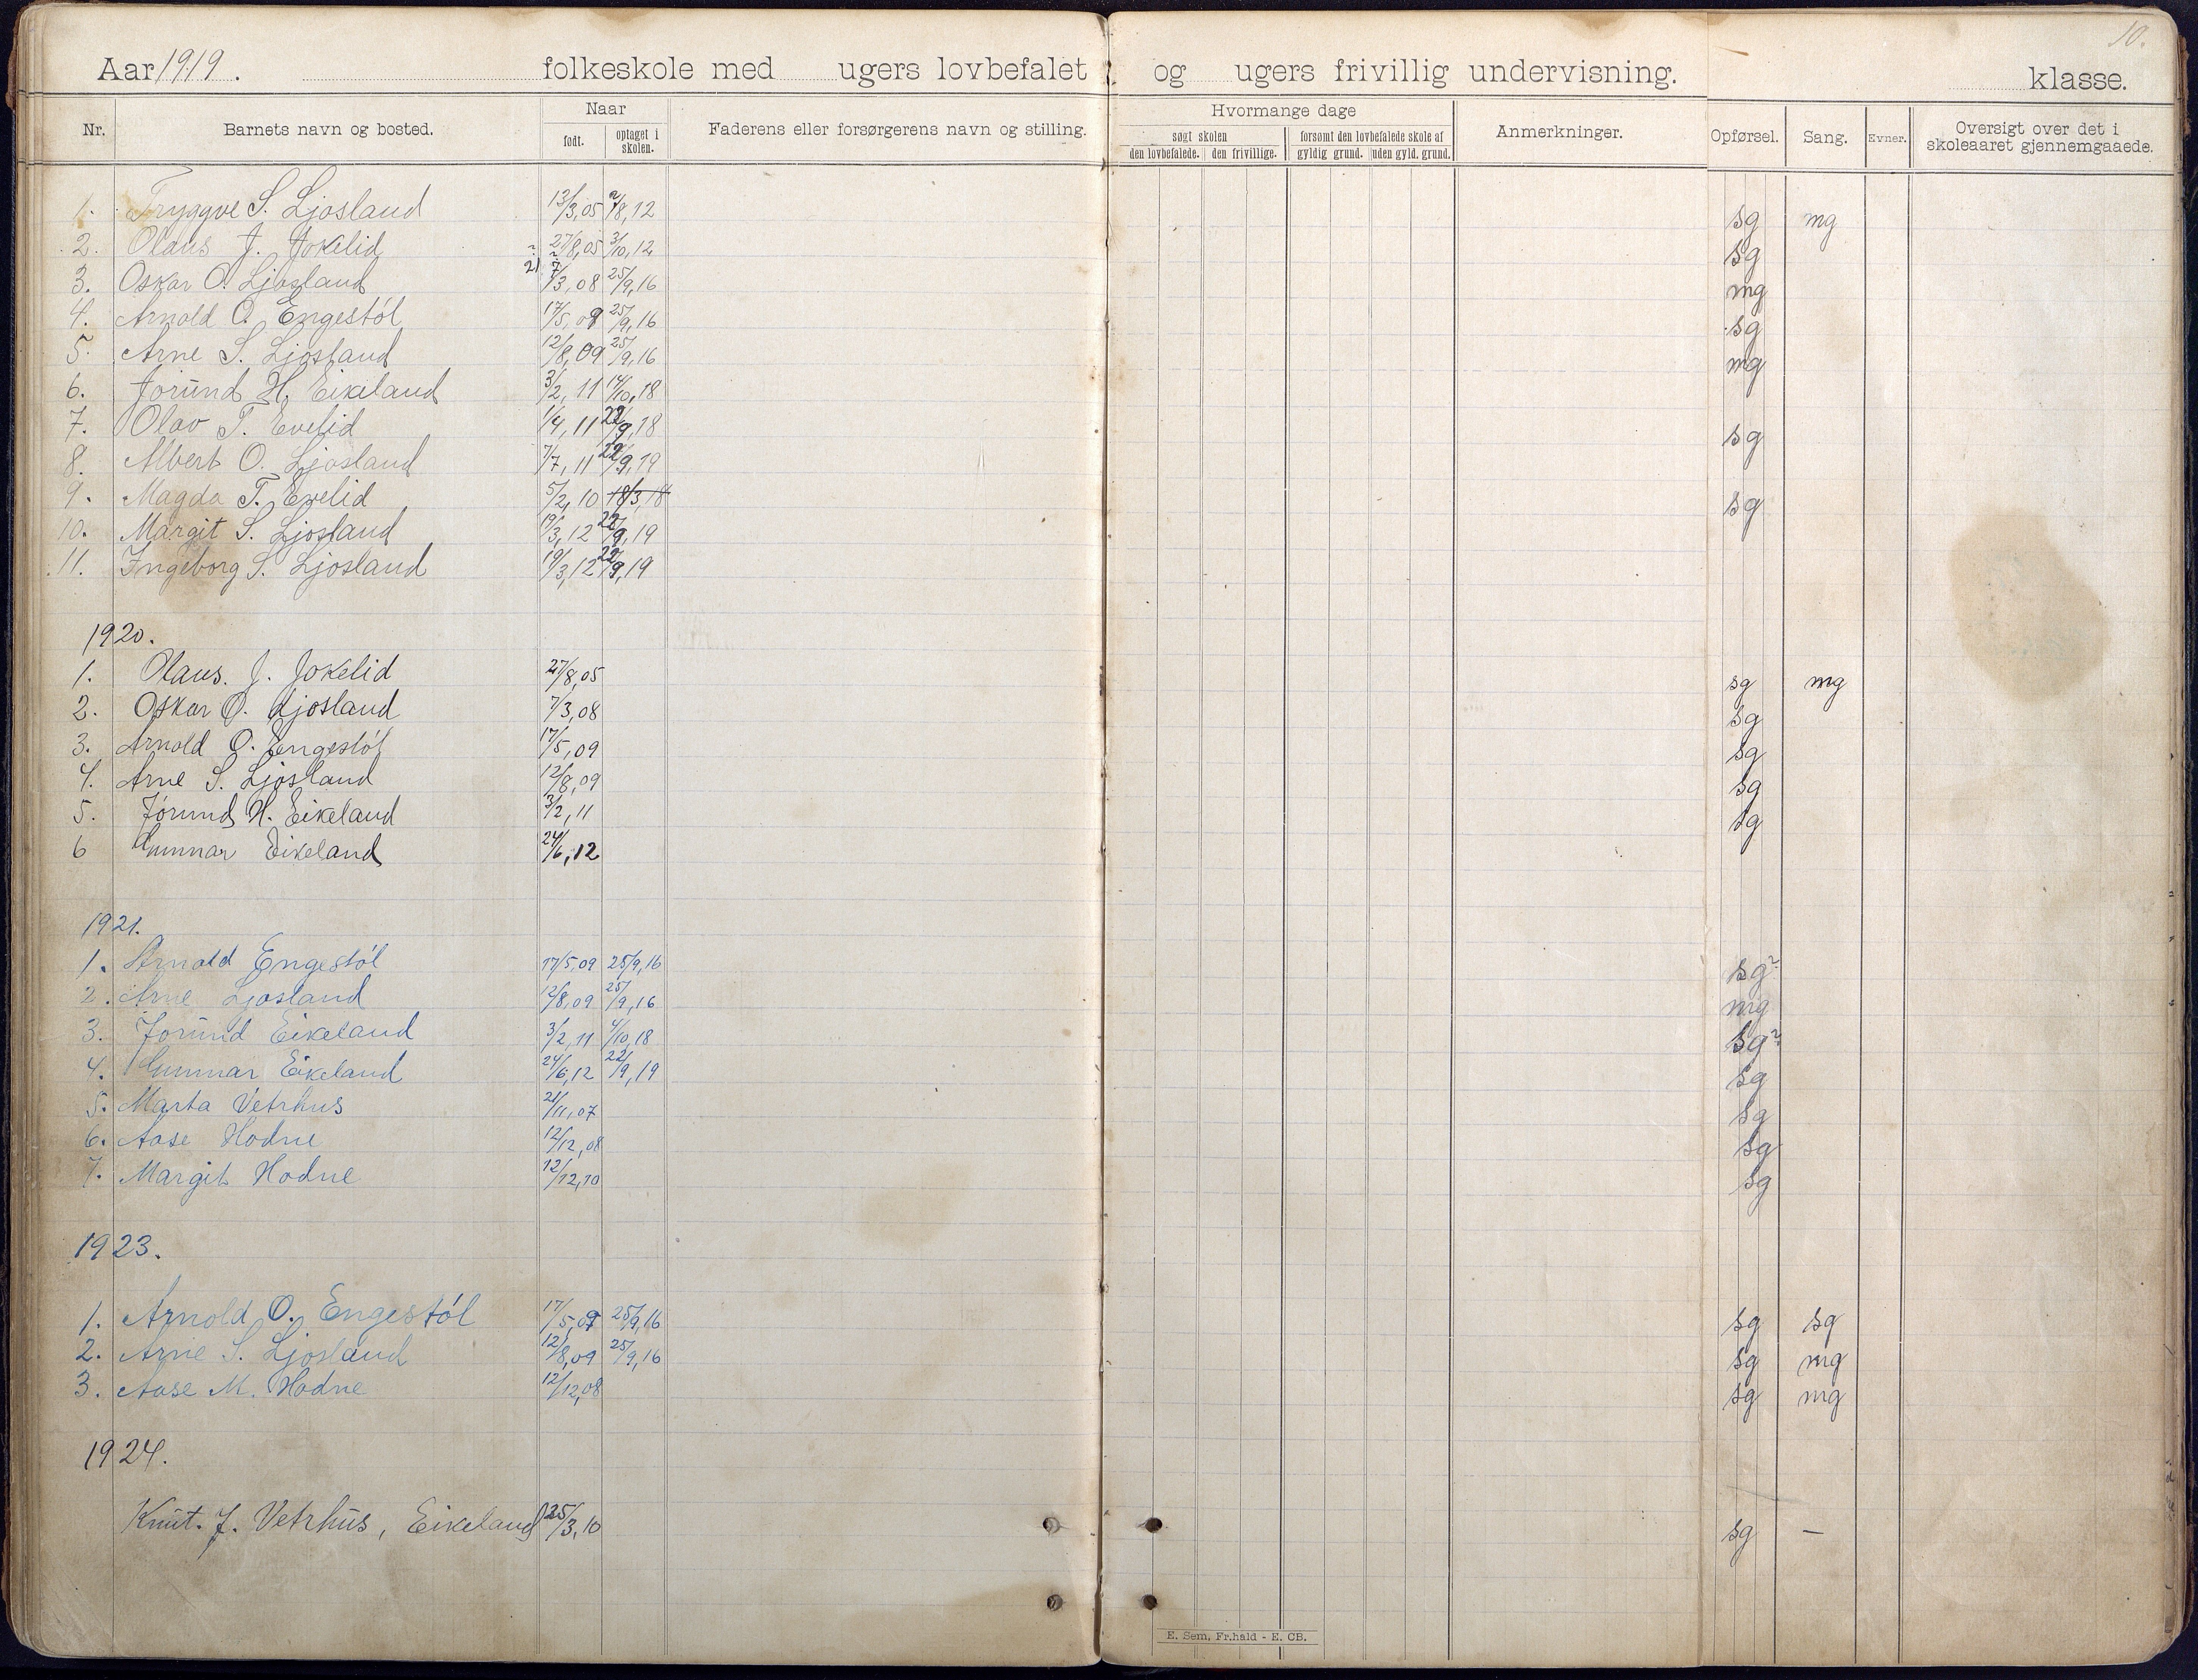 10.
Aar 1919. folkeskole med ugers lovbefalet og ugers frivillig undervisning. klasse.
Nr. Barnets navn og bosted. Naar født. optaget i skolen. Faderens eller forsørgerens navn og stilling. Hvormange dage søgt skolen den lovbefalede. den frivillige. forsømt den lovbefalede skole af gyldig grund. uden gyld. grund. Anmerkninger. Opførsel. Sang. Evner. Oversigt over det i skoleaaret gjennemgaaede.
1. Tryggve S. Ljosland 13/3,05 /8,12 sg mg
2. Olaus J. Jokelid 27/8,05 3/10,12 sg
3. Oskar O. Ljosland 7/3,08 25/9,16 mg
4. Arnold O. Engestól 17/5,09 25/9,16 sg
5. Arne S. Ljosland 12/8,09 25/9,16 mg
6. Jorund H. Eikeland 3/2,11 14/10,18
7. Olav T. Evelid 1/4,11 22/9,18 sg
8. Albert O. Ljosland 7/7,11 22/9,19
9. Magda T. Evelid 5/2,10 18/3,18 sg
10. Margit S. Ljosland 19/3,12 22/9,19
11. Ingeborg S. Ljosland 19/3,12 22/9,19
1920.
1. Olaus. J. Jokelid 27/8,05 sg mg
2. Oskar O. Ljosland 7/3,08 sg
3. Arnold O. Engestól 17/5,09 sg
4. Arne S. Ljosland 12/8,09 sg
5. Jorund H. Eikeland 3/2,11 sg
6 Gunnar Eikeland 24/6,12
1921.
1. Arnold Engestól 17/5,09 25/9,16 sg?
2. Arne Ljosland 12/8,09 25/9,16 mg
3. Jorund Eikeland 3/2,11 4/10,18 sg?
4. Gunnar Eikeland 24/6,12 22/9,19 sg
5. Marta Vetrhus 21/11,07 sg
6. Aase Hodne 12/12,08 sg
7. Margit Hodne 12/12,10 sg
1923.
1. Arnold O. Engestól 17/5,09 25/9,16 sg sg
2. Arne S. Ljosland 12/8,09 25/9,16 sg mg
3. Aase M. Hodne 12/12,08 sg mg
1924.
Knut. J. Vetrhus, Eikeland 25/3,10 sg –
E. Sem, Fr.hald - E. CB.